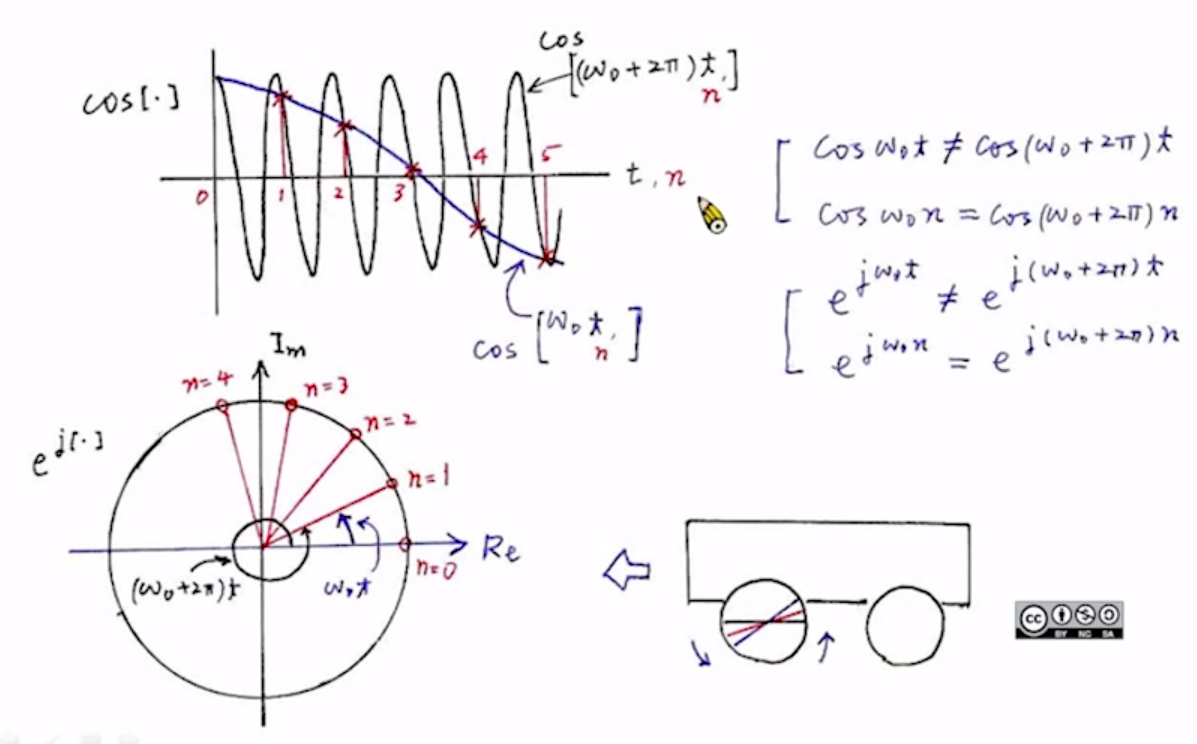 cos
[(ω₀+2π)t,]
n
cos[·]
0 1 2 3 4 5
t, n
cos [ω₀t,]
n
cos ω₀t ≠ cos(ω₀+2π)t
cos ω₀n = cos(ω₀+2π)n
e^{jω₀t} ≠ e^{j(ω₀+2π)t}
e^{jω₀n} = e^{j(ω₀+2π)n}
Im
n=4
n=3
n=2
e^{j[·]}
n=1
Re
n=0
(ω₀+2π)t
ω₀t
cc
BY NC SA